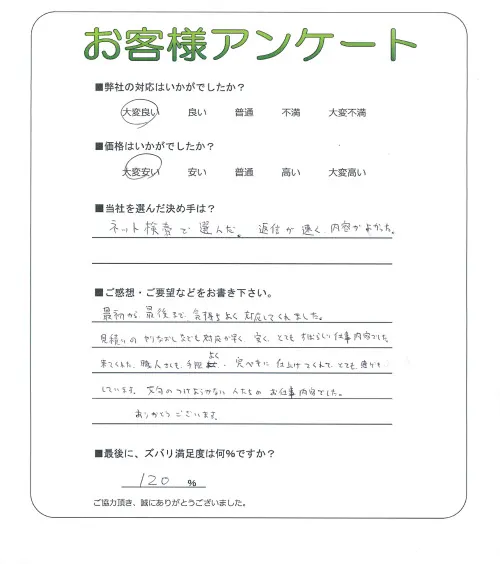 お客様アンケート
■弊社の対応はいかがでしたか？
大変良い 良い 普通 不満 大変不満
■価格はいかがでしたか？
大変安い 安い 普通 高い 大変高い
■当社を選んだ決め手は？
ネット検索で選んだ。 返信が速く、内容がよかった。
■ご感想・ご要望などをお書き下さい。
最初から最後まで、気持ちよく対応してくれました。
見積りのやりなおしなども対応が早く、安く、とてもすばらしい仕事内容でした
来てくれた、職人さんも、手際よく、 仕上げてくれて、とても
しています。文句のつけようがない人たちのお仕事内容でした。
ありがとうございます。
■最後に、ズバリ満足度は何％ですか？
120 %
ご協力頂き、誠にありがとうございました。